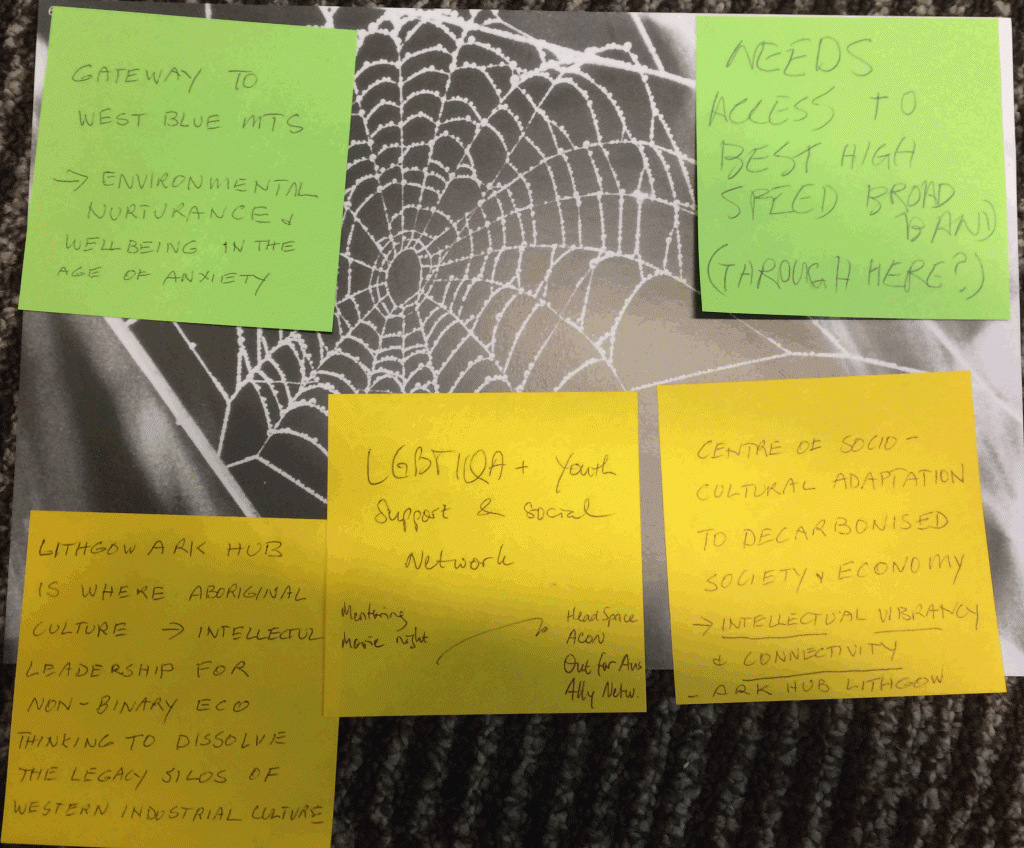 GATEWAY TO
WEST BLUE MTS
→ ENVIRONMENTAL
NURTURANCE &
WELLBEING IN THE
AGE OF ANXIETY
NEEDS
ACCESS TO
BEST HIGH
SPEED BROAD
BAND
(THROUGH HERE?)
LITHGOW ARK HUB
IS WHERE ABORIGINAL
CULTURE → INTELLECTUL
LEADERSHIP FOR
NON-BINARY ECO
THINKING TO DISSOLVE
THE LEGACY SILOS OF
WESTERN INDUSTRIAL CULTURE
LGBTIQA+ Youth
Support & Social
Network
Mentoring
Movie night
HeadSpace
Acon
Out for Aus
Ally Netw.
CENTRE OF SOCIO-
CULTURAL ADAPTATION
TO DECARBONISED
SOCIETY & ECONOMY
→ INTELLECTUAL VIBRANCY
& CONNECTIVITY
- ARK HUB LITHGOW